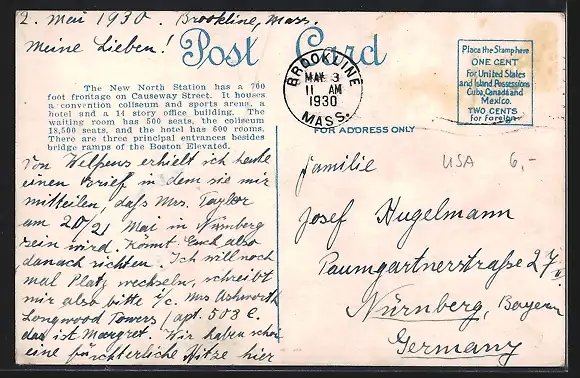 2. Mai 1930. Brookline, Mass.
Meine Lieben!
Post Card
The New North Station has a 700
foot frontage on Causeway Street. It houses
a convention coliseum and sports arena, a
hotel and a 14 story office building. The
waiting room has 500 seats, the coliseum
18,500 seats, and the hotel has 600 rooms.
There are three principal entrances besides
bridge ramps of the Boston Elevated.
Von Welpens erhielt ich heute
einen Brief in dem sie mir
mitteilen, daß Mrs. Taylor
am 20/21 Mai in Nürnberg
sein wird. Könnt Euch also
danach richten. Ich will noch
mal Platz wechseln, schreibt
mir also bitte c/o. Mrs Ashworth
Longwood Towers / apt. 508 E.
das ist Margret. Wir haben schon
eine fürchterliche Hitze hier
BROOKLINE
MAY 3
11 AM
1930
MASS.
Place the Stamp here
ONE CENT
For United States
and Island Possessions
Cuba, Canada and
Mexico.
TWO CENTS
for Foreign
FOR ADDRESS ONLY
USA 6,-
Familie
Josef Hugelmann
Paumgartnerstraße 27/II
Nürnberg, Bayern
Germany